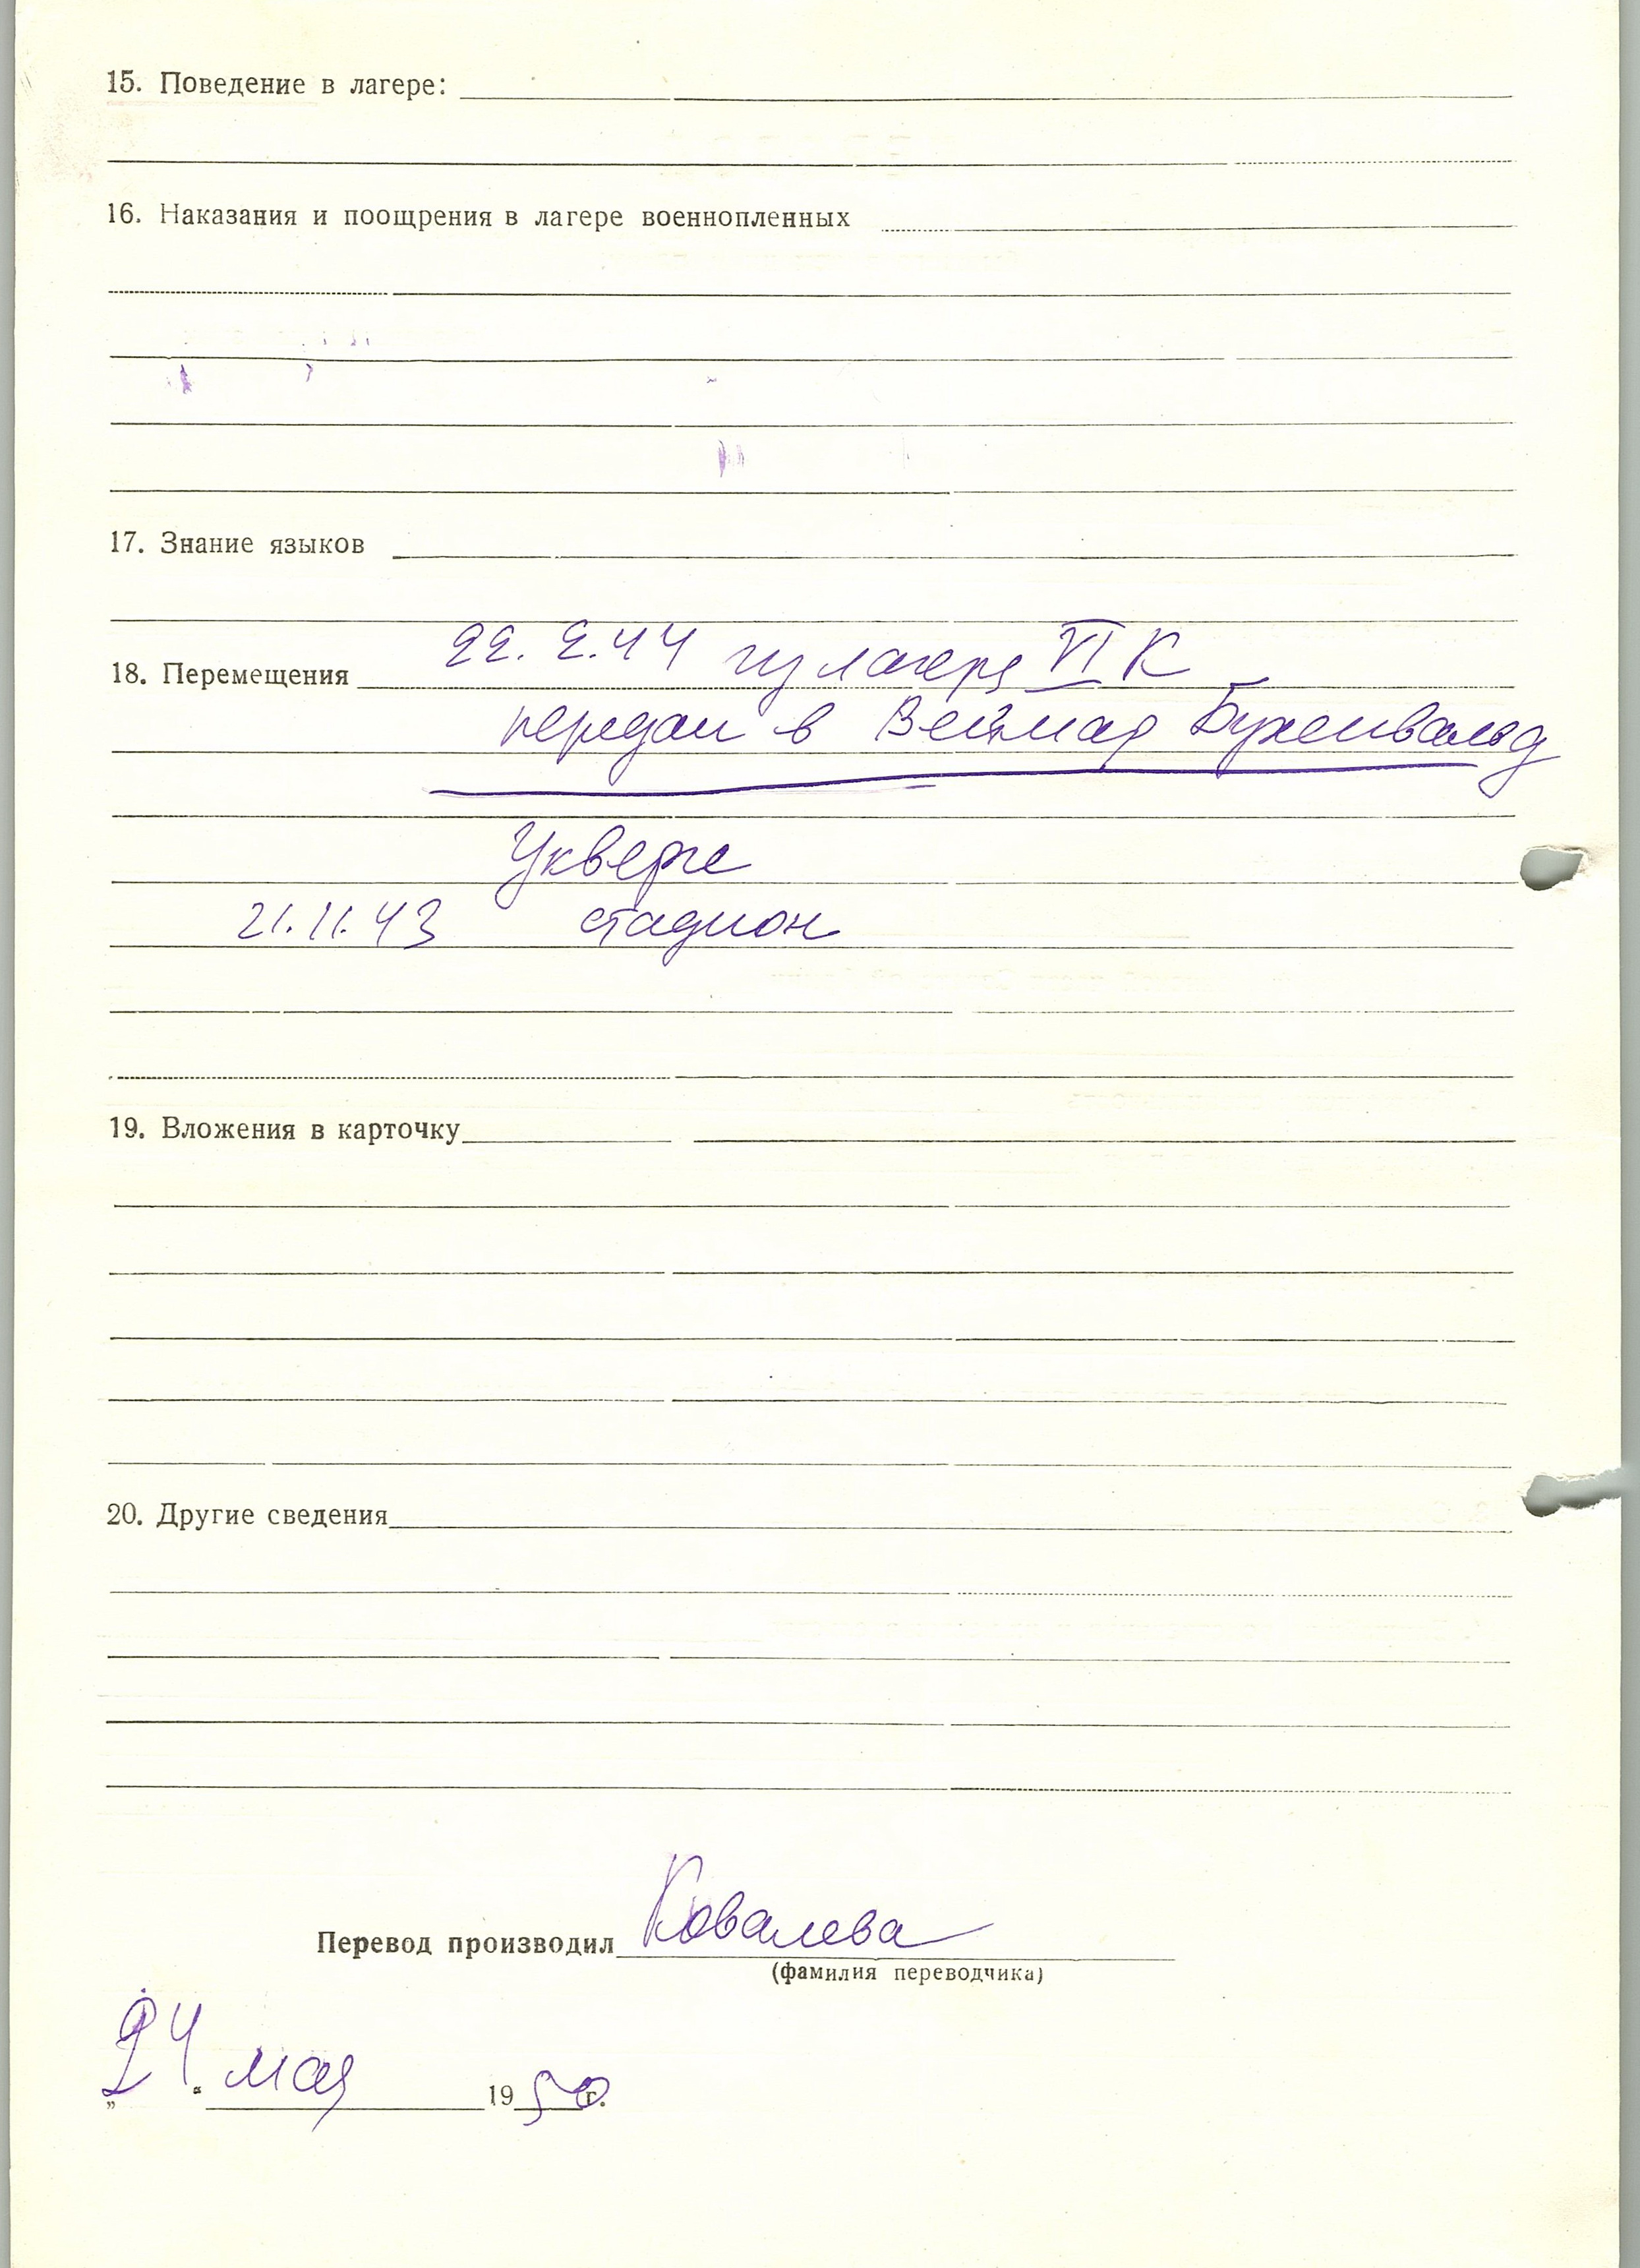 15. Поведение в лагере:
16. Наказания и поощрения в лагере военнопленных
17. Знание языков
22. 2. 44 из лагеря VI К
18. Перемещения
передан в Веймар Бухенвальд
Укверге
21. 11. 43 стадион
19. Вложения в карточку
20. Другие сведения
Перевод производил Ковалева
(фамилия переводчика)
„24“ мая 1950 г.